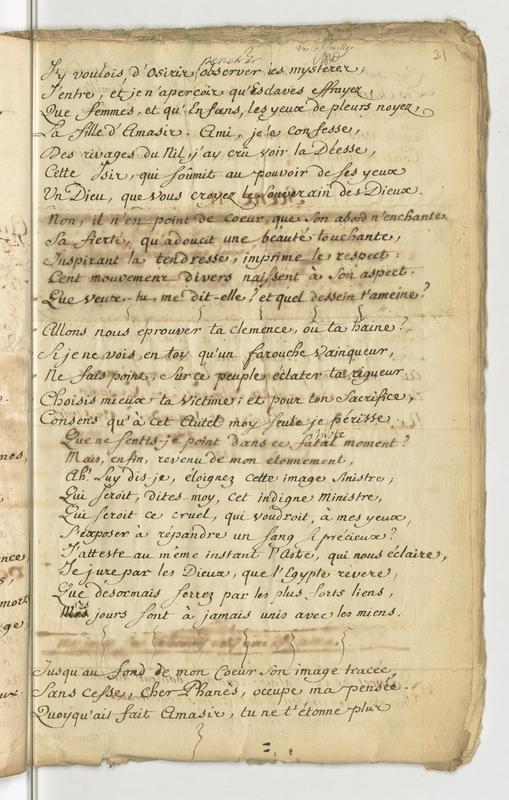 21
J'y voulois, d'Osirir observer les mysteres,
J'entre, et je n'apercois qu'esclaves effrayez,
Que femmes, et qu'Enfans, les yeux de pleurs noyez,
La fille d'Amasir. Ami, je le confesse,
Des rivages du Nil, j'ay cru voir la Déesse,
Cette Isir, qui soumit au pouvoir de ses yeux
Un Dieu, que vous croyez le souverain des Dieux.
Non, il n'en point de Coeur, que son abord n'enchante
Sa fierté, qu'adoucit une beauté touchante,
Inspirant la tendresse, imprime le respect:
Cent mouvemens divers naissent à son aspect.
Que veux-tu, me dit-elle? et quel dessein t'ameine?
Allons nous éprouver ta clemence, ou ta haine?
Si je ne vois en toy qu'un farouche Vainqueur,
Ne fais point, sur ce peuple éclater ta rigueur
Choisis mieux ta Victime; et pour ton Sacrifice,
Consens qu'à cet Autel moy seule je périsse.
Que ne sentis-je point dans ce fatal moment?
Mais, enfin, revenu de mon étonnement,
Ah! Luy dis-je, éloignez cette image sinistre;
Qui seroit, dites moy, cet indigne Ministre,
Qui seroit ce cruel, qui voudroit, à mes yeux,
S'exposer à répandre un sang si précieux?
J'atteste au même instant l'Astre, qui nous éclaire,
Je jure par les Dieux, que l'Egypte révère,
Que désormais serrez par les plus forts liens,
jours sont à jamais unis avec les miens.
Jusqu'au fond de mon Coeur son image tracée,
Sans cesse, cher Phanès, occupe ma pensée.
Quoyqu'ait fait Amasir, tu ne t'étonne plus